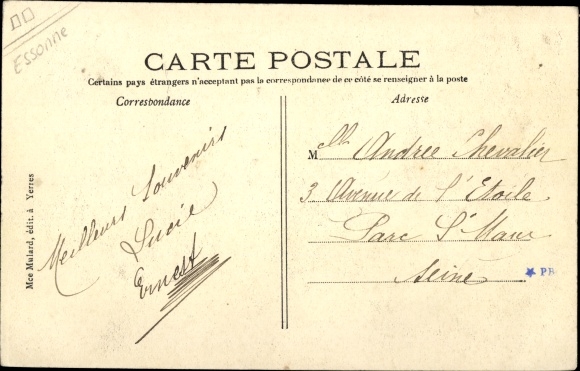 Essonne
CARTE POSTALE
Certains pays étrangers n'acceptant pas la correspondance de ce côté se renseigner à la poste
Correspondance
Adresse
Meilleurs Souvenirs
Lucie
Ernest
Mce Mulard, édit. à Yerres
Mlle Andree Chevalier
3 Avenue de l'Etoile
Parc St Maur
Seine
PB